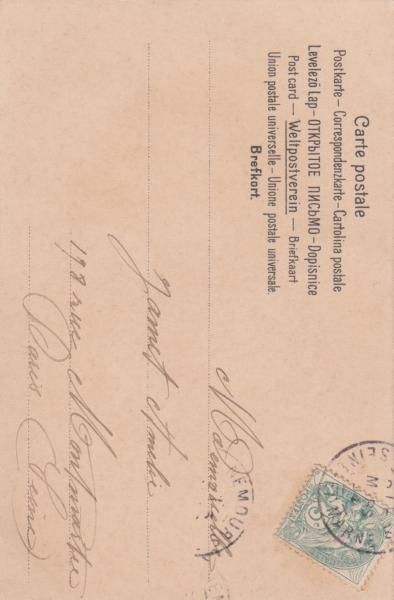 Carte postale
Postkarte – Correspondenzkarte – Cartolina postale
Levelező Lap – ОТКРЫТОЕ ПИСЬМО – Dopisnice
Post card — Weltpostverein — Briefkaart
Union postale universelle – Unione postale universale.
Brefkort.
Mademoiselle
Janet Amélie
198 rue Montmartre
Paris Seine